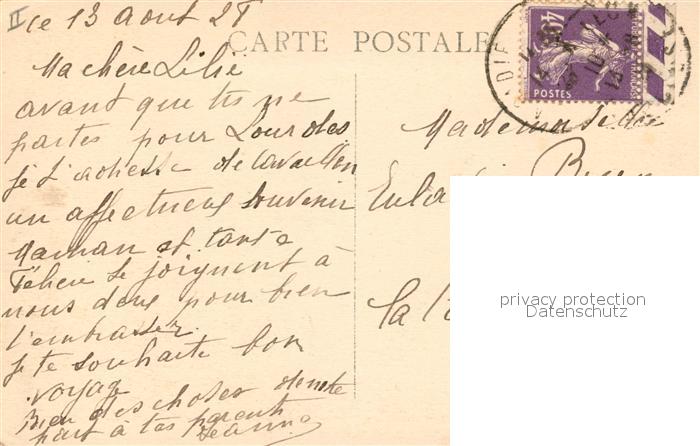 II
le 13 Aout 2
CARTE POSTALE
Ma chère Lilie
avant que tu ne
partes pour Lourdes
je t'adresse de Cavaillon
un affectueux souvenir
Maman et tante
se joignent à
nous deux pour bien
t'embrasser.
Je te souhaite bon
voyage
Bien des choses de notre
part à tes parents
Jeanne
40
POSTES
Mademoiselle
La
privacy protection
Datenschutz